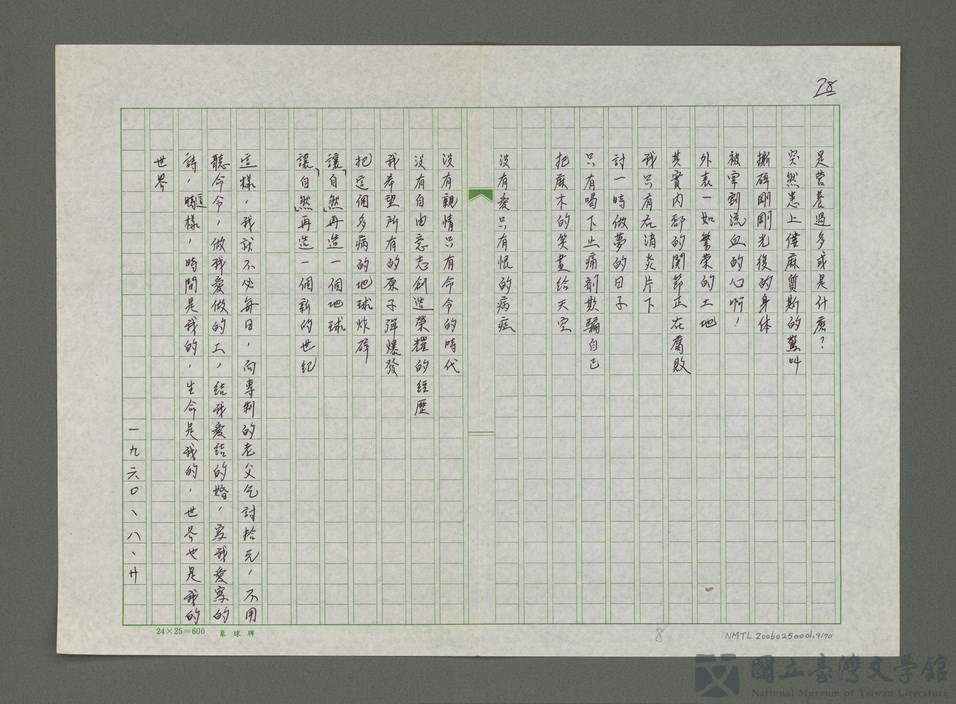 28
是營養過多或是什麼?
突然患上僂麻質斯的驚叫
撕碎剛剛光復的身体
被宰割流血的心啊,
外表一如繁榮的土地
其實內部的関節正在腐敗
我只有在消炎片下
討一時做夢的日子
只有喝下止痛剤欺騙自己
把麻木的笑蓋給天空
沒有愛只有恨的病症
沒有親情只有命令的時代
沒有自由意志創造榮耀的經歷
我希望所有的原子彈爆發
把這個多病的地球炸碎
讓「自然」再造一個地球
讓「自然」再造一個新的世紀
這樣,我就不必每日,向專制的老父乞討拾元,不用
聽命令,做我愛做的工,結我愛結的婚,寫我愛寫的
詩,這樣,時間是我的,生命是我的,世界也是我的
世界
一九六〇、八、廿
24×25=600
星球牌
8
NMTL 20060250001,9/90
國立臺灣文學館
National Museum of Taiwan Literature